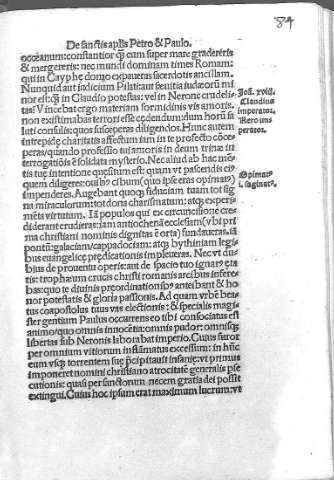 84
De sanctis aplis Petro & Paulo.
occeanum: constantior qȝ cum super mare gradereris
& mergereris: nec mundi dominam times Romam:
qui in Cayphe domo expaueras sacerdotis ancillam.
Nunquid aut iudicium Pilati: aut seuitia iudæorũ mi
nor est: qȝ in Claudio potestas: vel in Nerone crudeli-
tas? Vincebat ergo materiam formidinis vis amoris.
non existimabas terrori esse cedendum: dum horũ sa
luti consulis: quos susceperas diligendos. Hunc autem
intrepidę charitatis affectum iam
interrogatiõis ẽ solidata mysterio. Nec aliud ab hac mẽ-
tis tuę intentione quęsitum est: quam vt pascendis
quem diligeres: ouibꝰ cibum (quo ipse eras opimatꝰ)
impenderes. Augebant quoqȝ fiduciam tuam tot sig
na miraculorum: tot dona charismatum: atqȝ experi-
mẽta virtutum. Iã populos qui ex circuncisione cre-
diderant erudieras: iam antiochenã ecclesiam (vbi pri
ma christiani nominis dignitas ẽ orta) fundaueras. iã
pontũ: galaciam: cappadociam: atqȝ bythiniam legi-
bus euangelicę prędicationis impleueras. Nec vt du-
bius de prouentu operis: aut de spacio tuo ignarꝰ ęta
tis: trophæum crucis christi romanis arcibus infere
bas: quo te diuinis pręordinationibꝰ anteibant & ho
nor potestatis & gloria passionis. Ad quam vrbẽ bea-
tus coapostolus tuus vas electionis: & specialis magi-
ster gentium Paulus occurrens eo tibi consociatus est
animo: quo omnis innocẽtia: omnis pudor: omnisqȝ
libertas sub Neronis laborabat imperio. Cuius furor
per omnium vitiorum inflãmatus excessum: in hũc
eum vsqȝ torrentem suę pręcipitauit insanię: vt primus
imponeret nomini christiano atrocitatẽ generalis pse
cutionis: quasi per sanctorum necem gratia dei posset
extingui. Cuius hoc ipsum erat maximum lucrum: vt
Joã. xviij.
Claudius
imperator.
Nero im-
perator.
Opimatꝰ
i. saginatꝰ.